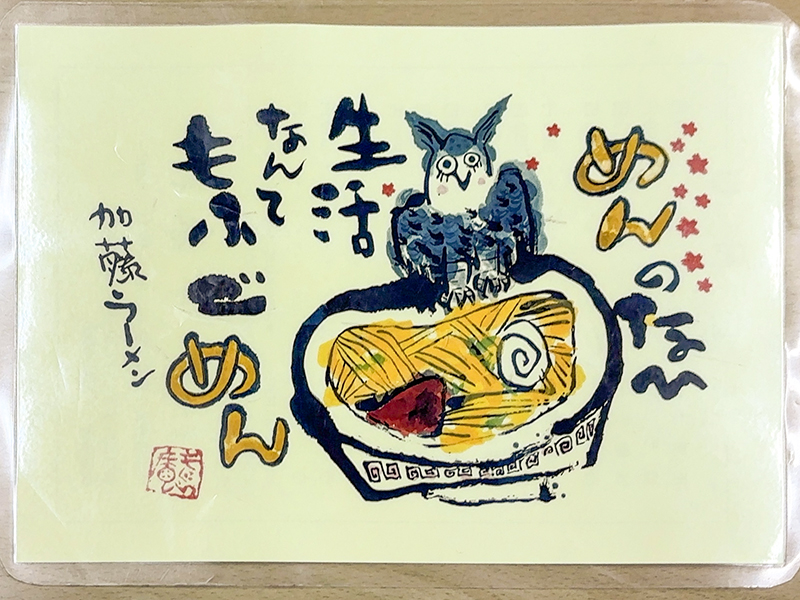 めんのない
生活
なんて
もふごめん
加藤ラーメン